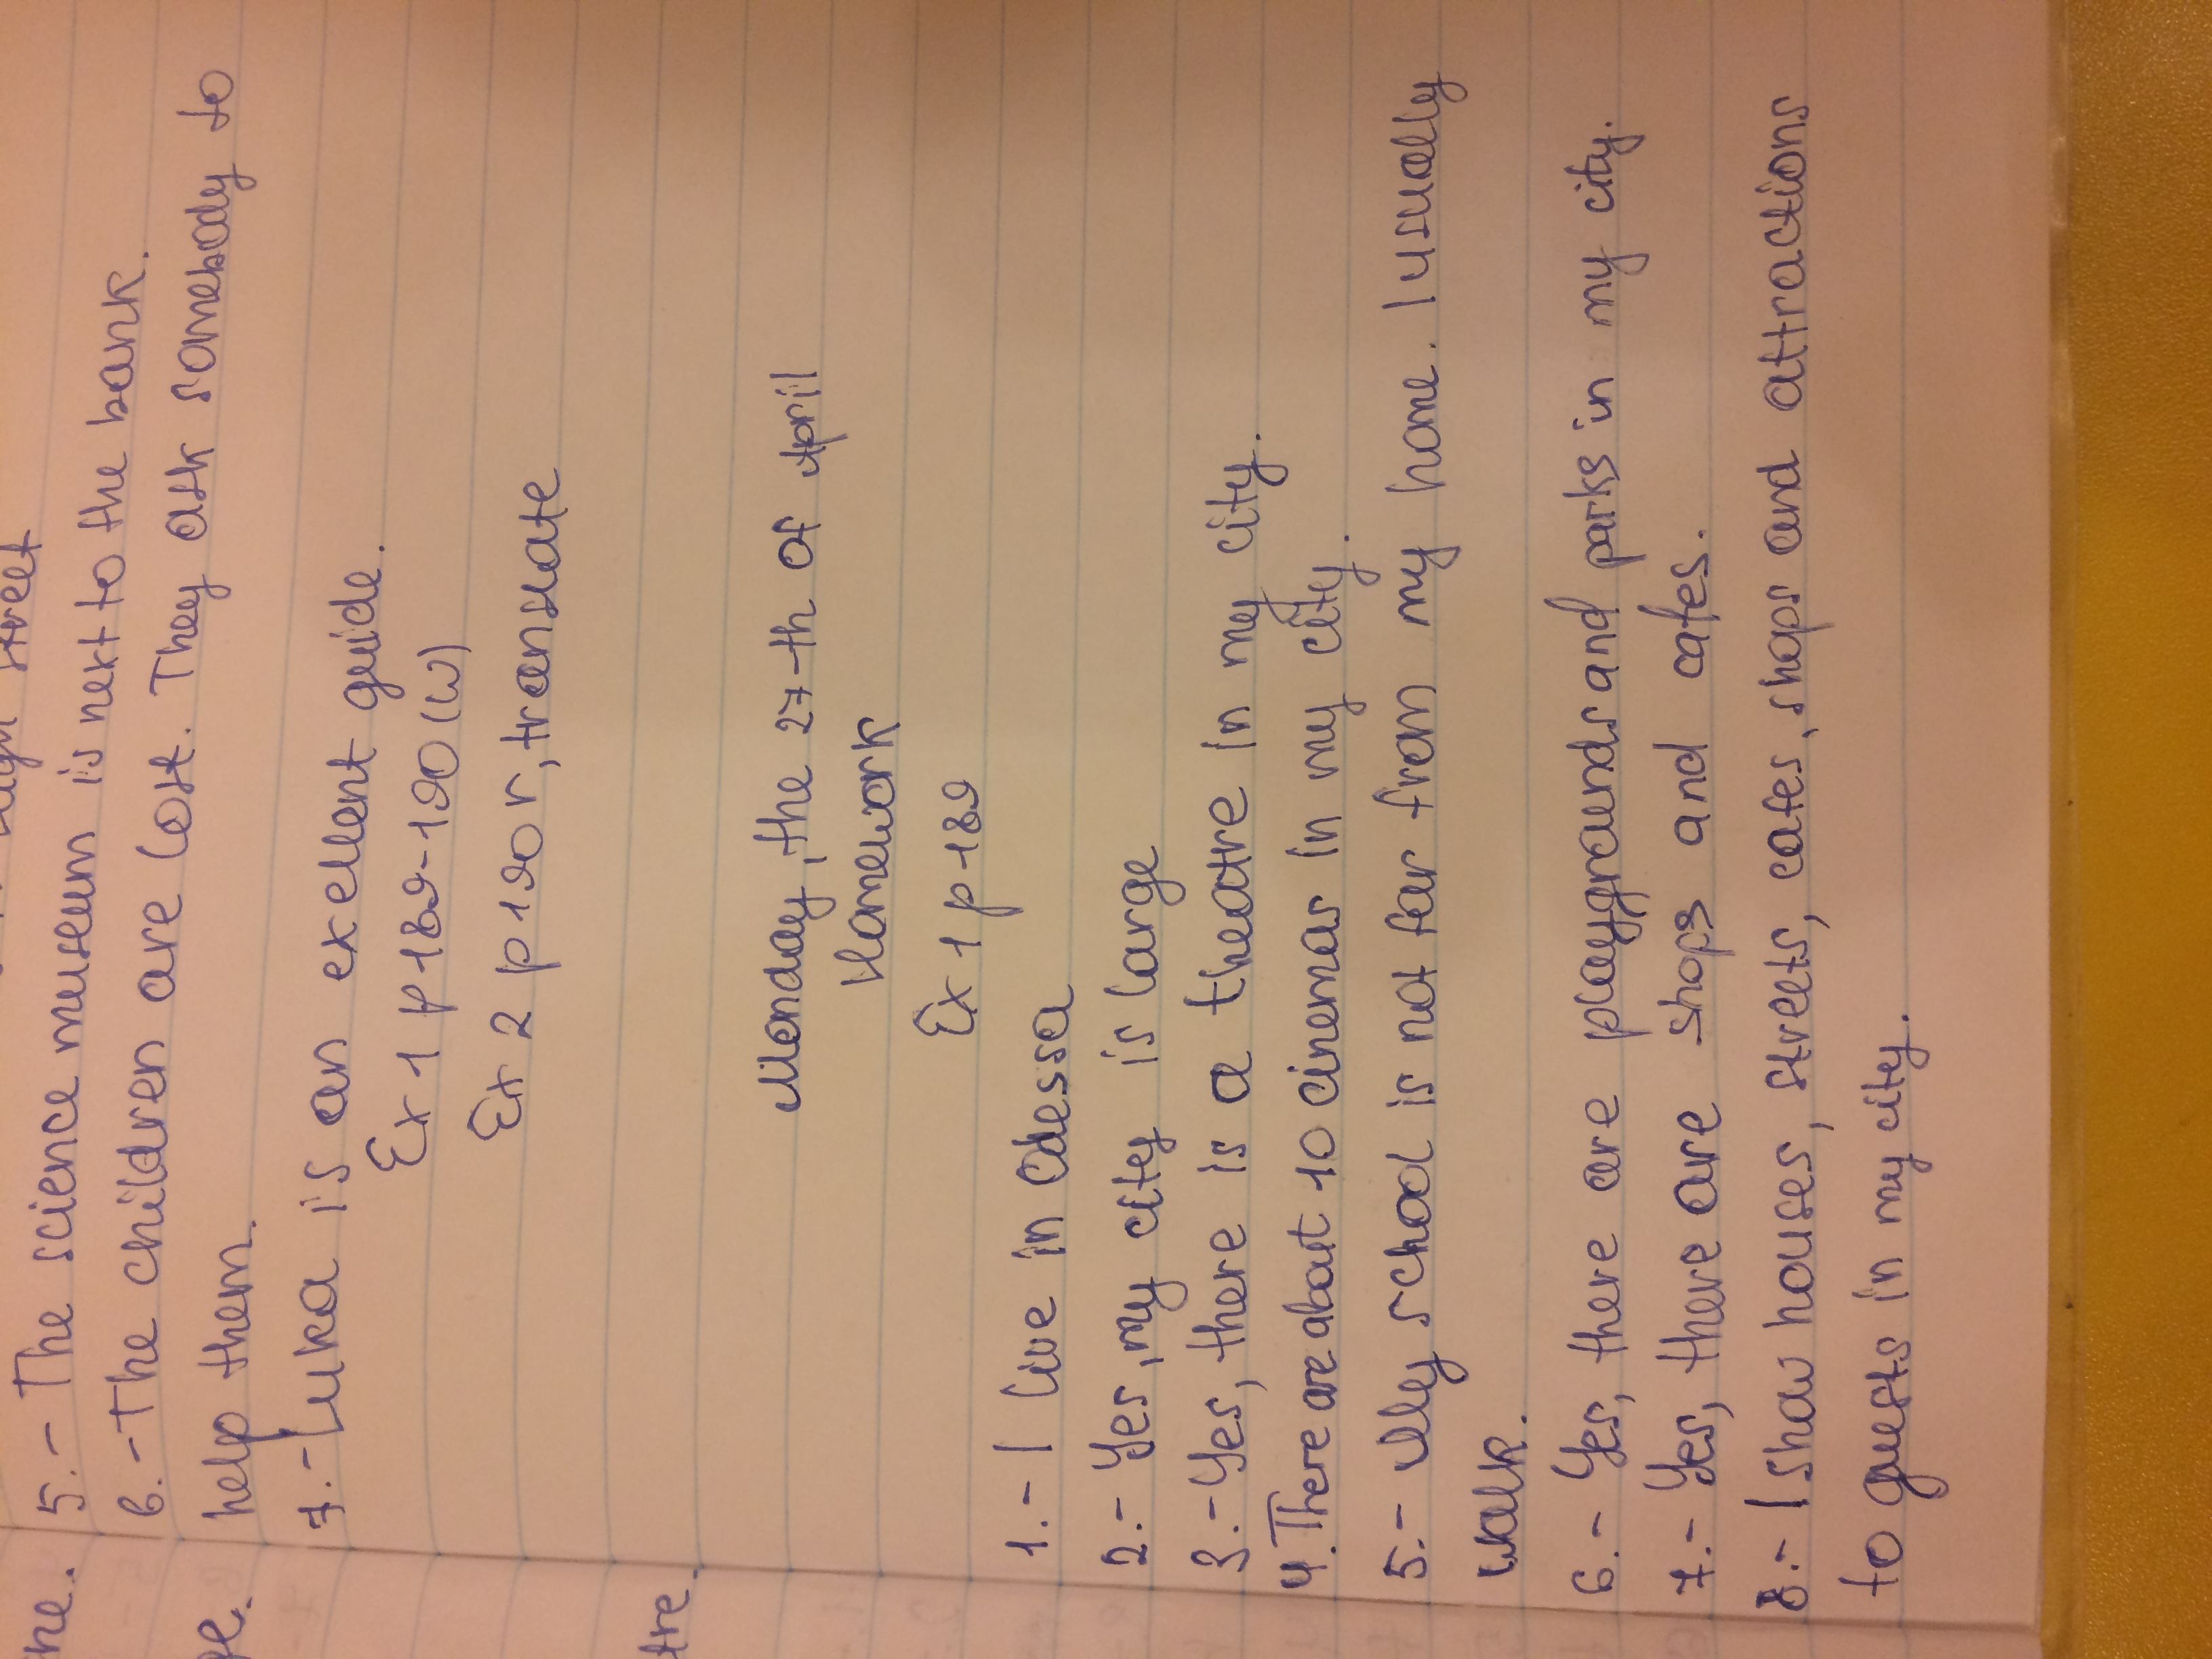 street
5.- The science museum is next to the bank.
6.-The children are lost. They ask somebody to
help them.
7.-Luka is an exellent guide.
Ex 1 p 189-190 (w)
Ex 2 p 190 r, translate
Monday, the 27-th of April
Homework
Ex 1 p 189
1.- I live in Odessa
2.- Yes, my city is large
3.-Yes, there is a theatre in my city.
4. There are about 10 cinemas in my city.
5.- My school is not far from my home. I usually
walk.
6.- Yes, there are playgrounds and parks in my city.
7.- Yes, there are shops and cafes.
8.- I show houses, streets, cafes, shops and attractions
to guests in my city.